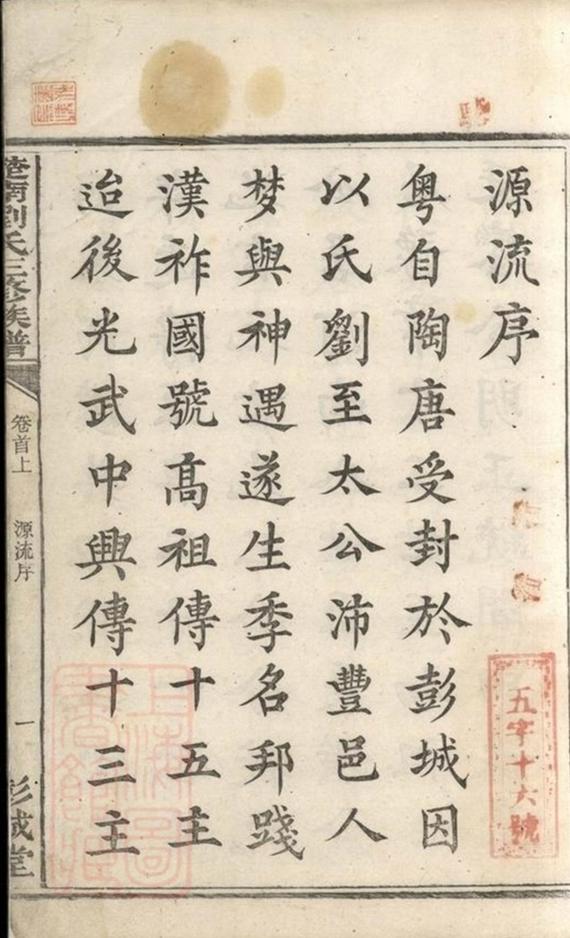 源流序
粤自陶唐受封於彭城因
以氏劉至太公沛豐邑人
梦與神遇遂生季名邦踐
漢祚國號髙祖傳十五主
迨後光武中興傳十三主
五字十六號
楚南劉氏三修族譜
卷首上
源流序
一
彭城堂